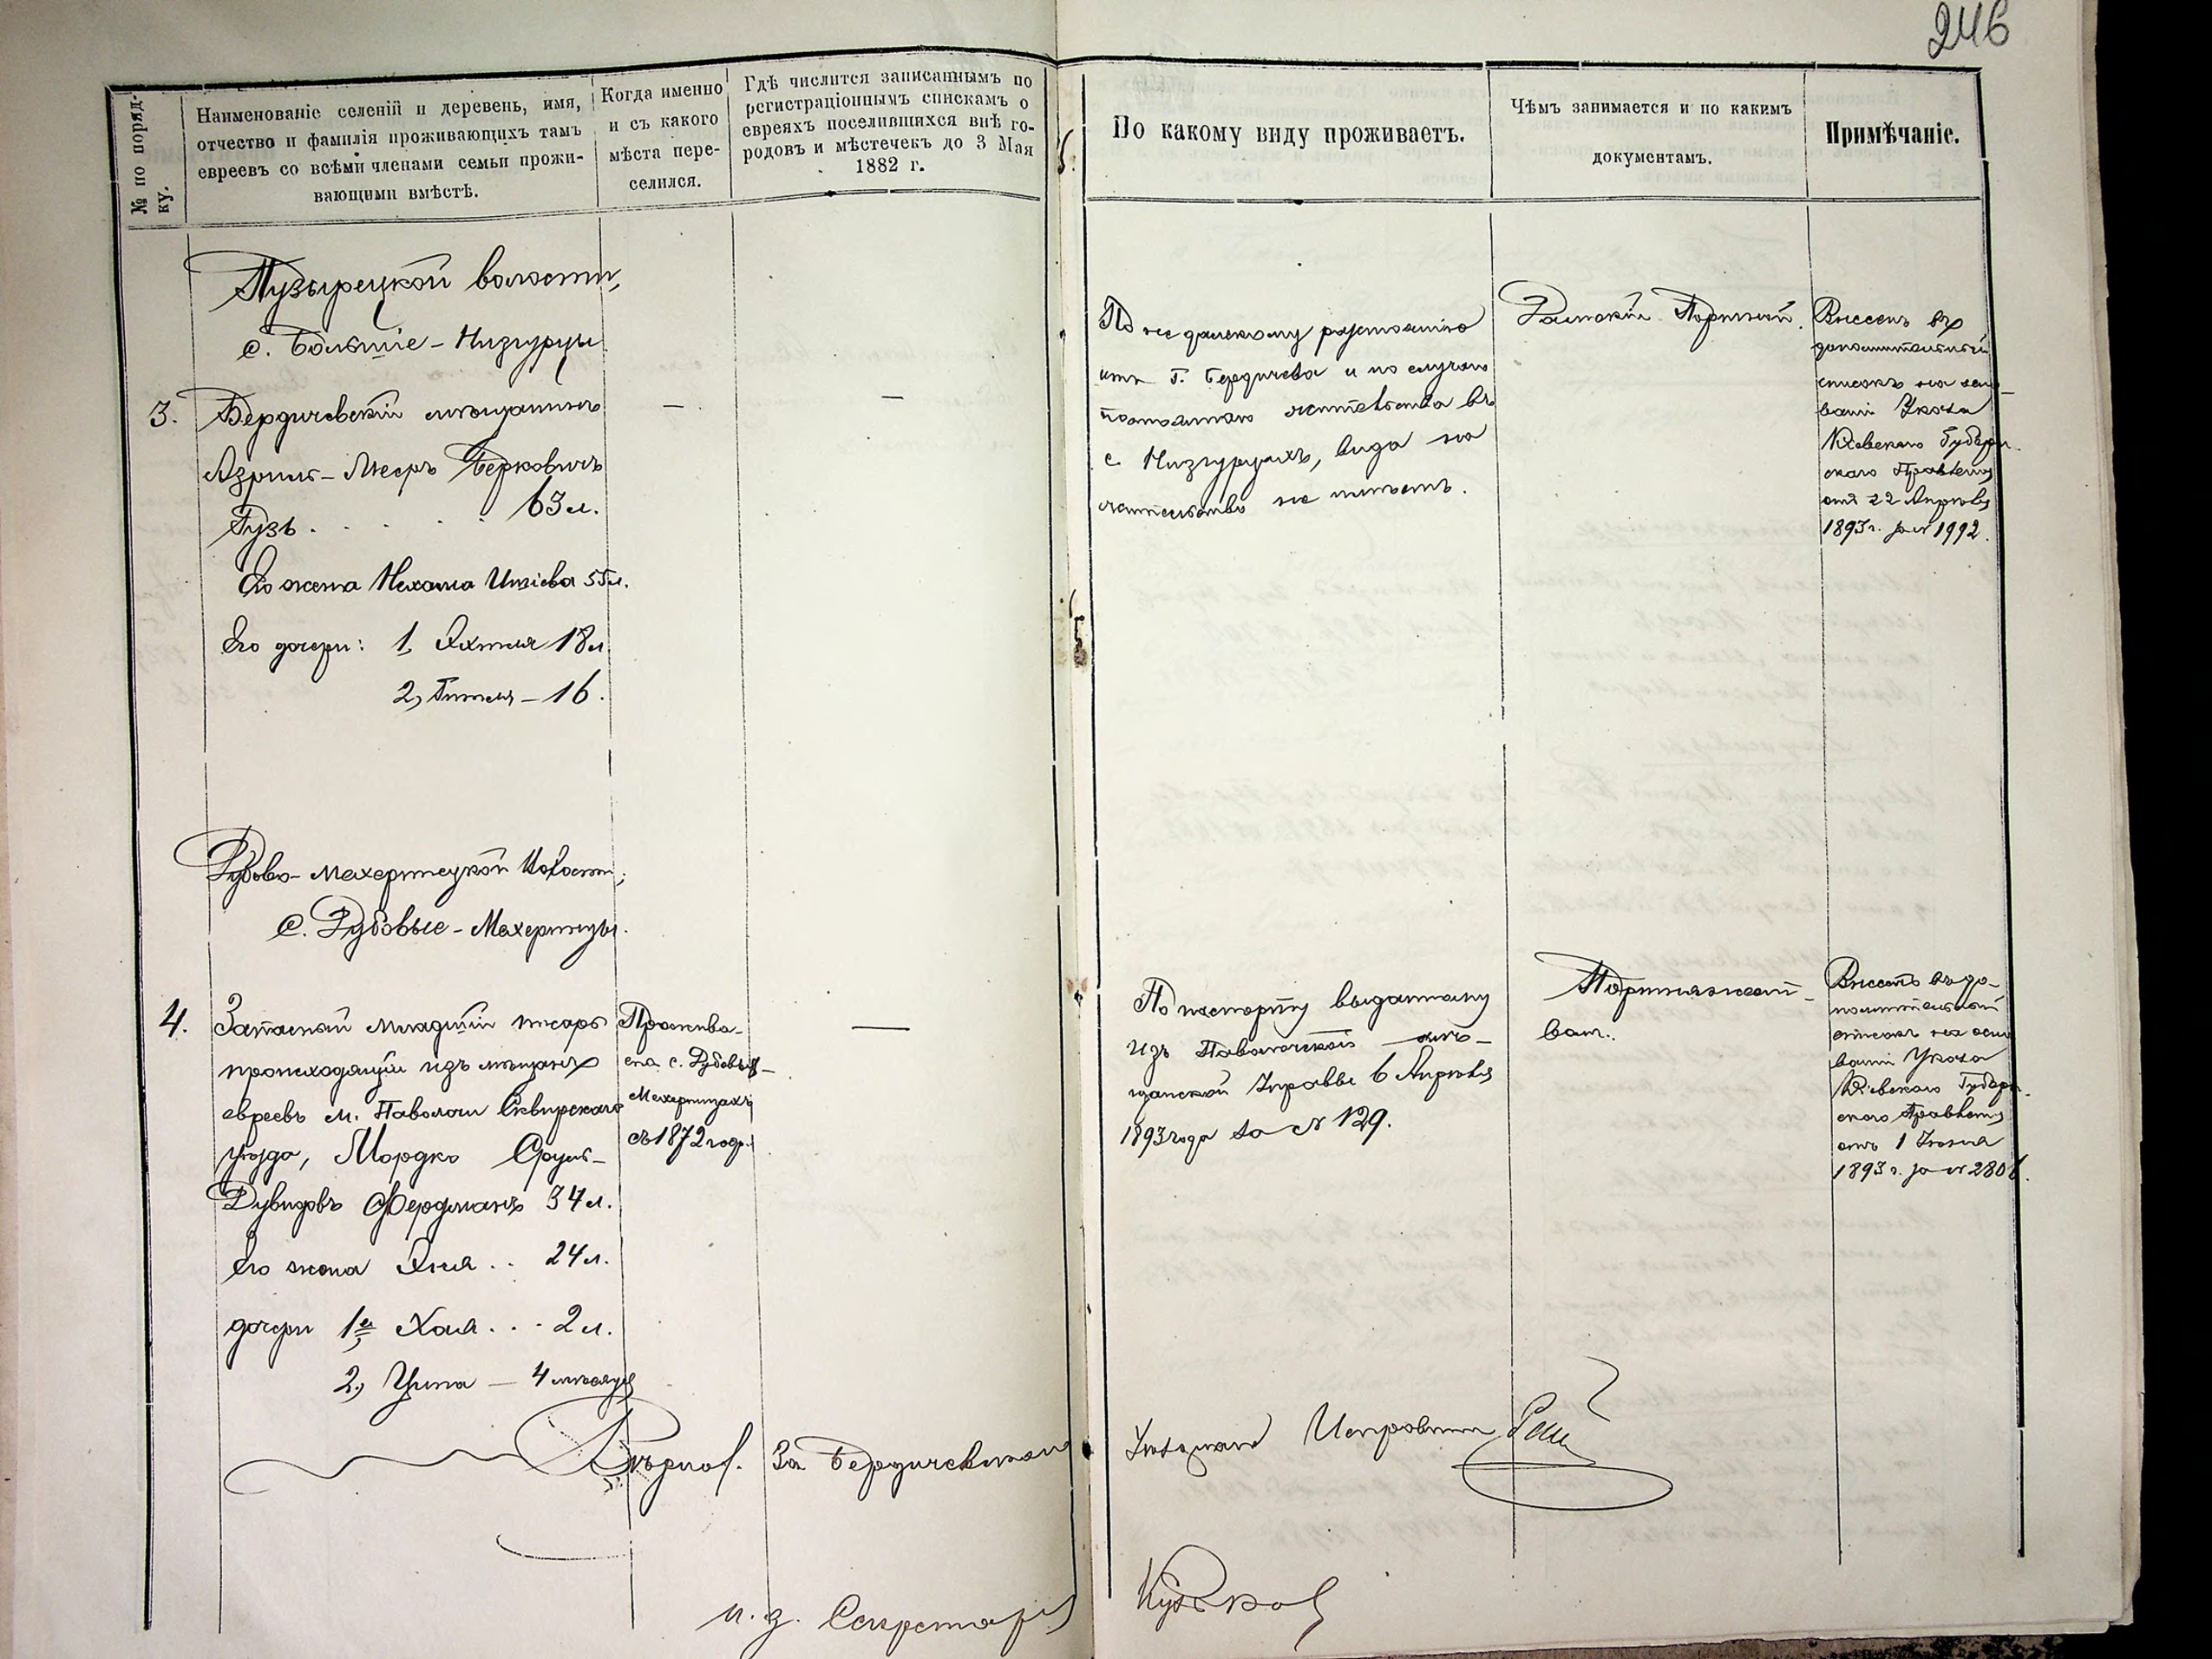 246
№ по поряд-
ку.
Наименованіе селеній и деревень, имя,
отчество и фамилія проживающихъ тамъ
евреевъ со всѣми членами семьи прожи-
вающими вмѣстѣ.
Когда именно
и съ какого
мѣста пере-
селился.
Гдѣ числится записаннымъ по
регистраціоннымъ спискамъ о
евреяхъ поселившихся внѣ го-
родовъ и мѣстечекъ до 3 Мая
1882 г.
По какому виду проживаетъ.
Чѣмъ занимается и по какимъ
документамъ.
Примѣчаніе.
Пузырецкой волости,
с. Большіе-Низгурцы
3. Бердичевскій мѣщанинъ
Азриль-Мееръ Берковичъ
Гузь . . . . . 63 л.
Его жена Нехама Иціева 55 л.
Его дочери: 1, Яхтля 18 л.
2, Гителя - 16.
—
—
По не далекому растоянію
отъ Г. Бердичева и по случаю
постояннаго жительства въ
с. Низгурцахъ, вида на
жительство не имѣетъ.
Дамскій Портной.
Внесенъ въ
дополнительный
списокъ на осно-
ваніи Указа
Кіевскаго Губерн-
скаго Правленія
отъ 22 Апрѣля
1893 г. за № 1992.
Дубово-Махеринецкой Волости,
с. Дубовые-Махеринцы.
4. Запасный младшій писарь
происходящій изъ мѣщанъ
евреевъ м. Паволочи Сквирскаго
уѣзда, Мордко Сруль-
Дувидовъ Фердманъ 34 л.
Его жена Эня .. 24 л.
дочери 1я Хая ... 2 л.
2, Ципа — 4 мѣсяца
Прожива-
въ с. Дубовыхъ-
Махеринцахъ
съ 1872 года.
—
По паспорту выданному
изъ Паволочской мѣ-
щанской Управы 6 Апрѣля
1893 года за № 129.
Портняжест-
вомъ.
Внесенъ въ до-
полнительный
списокъ на осно
ваніи Указа
Кіевскаго Губерн-
скаго Правленія
отъ 1 Іюня
1893 г. за № 2806.
Вѣрно. За Бердичевскаго
Уѣзднаго Исправника
и. д. Секретаря